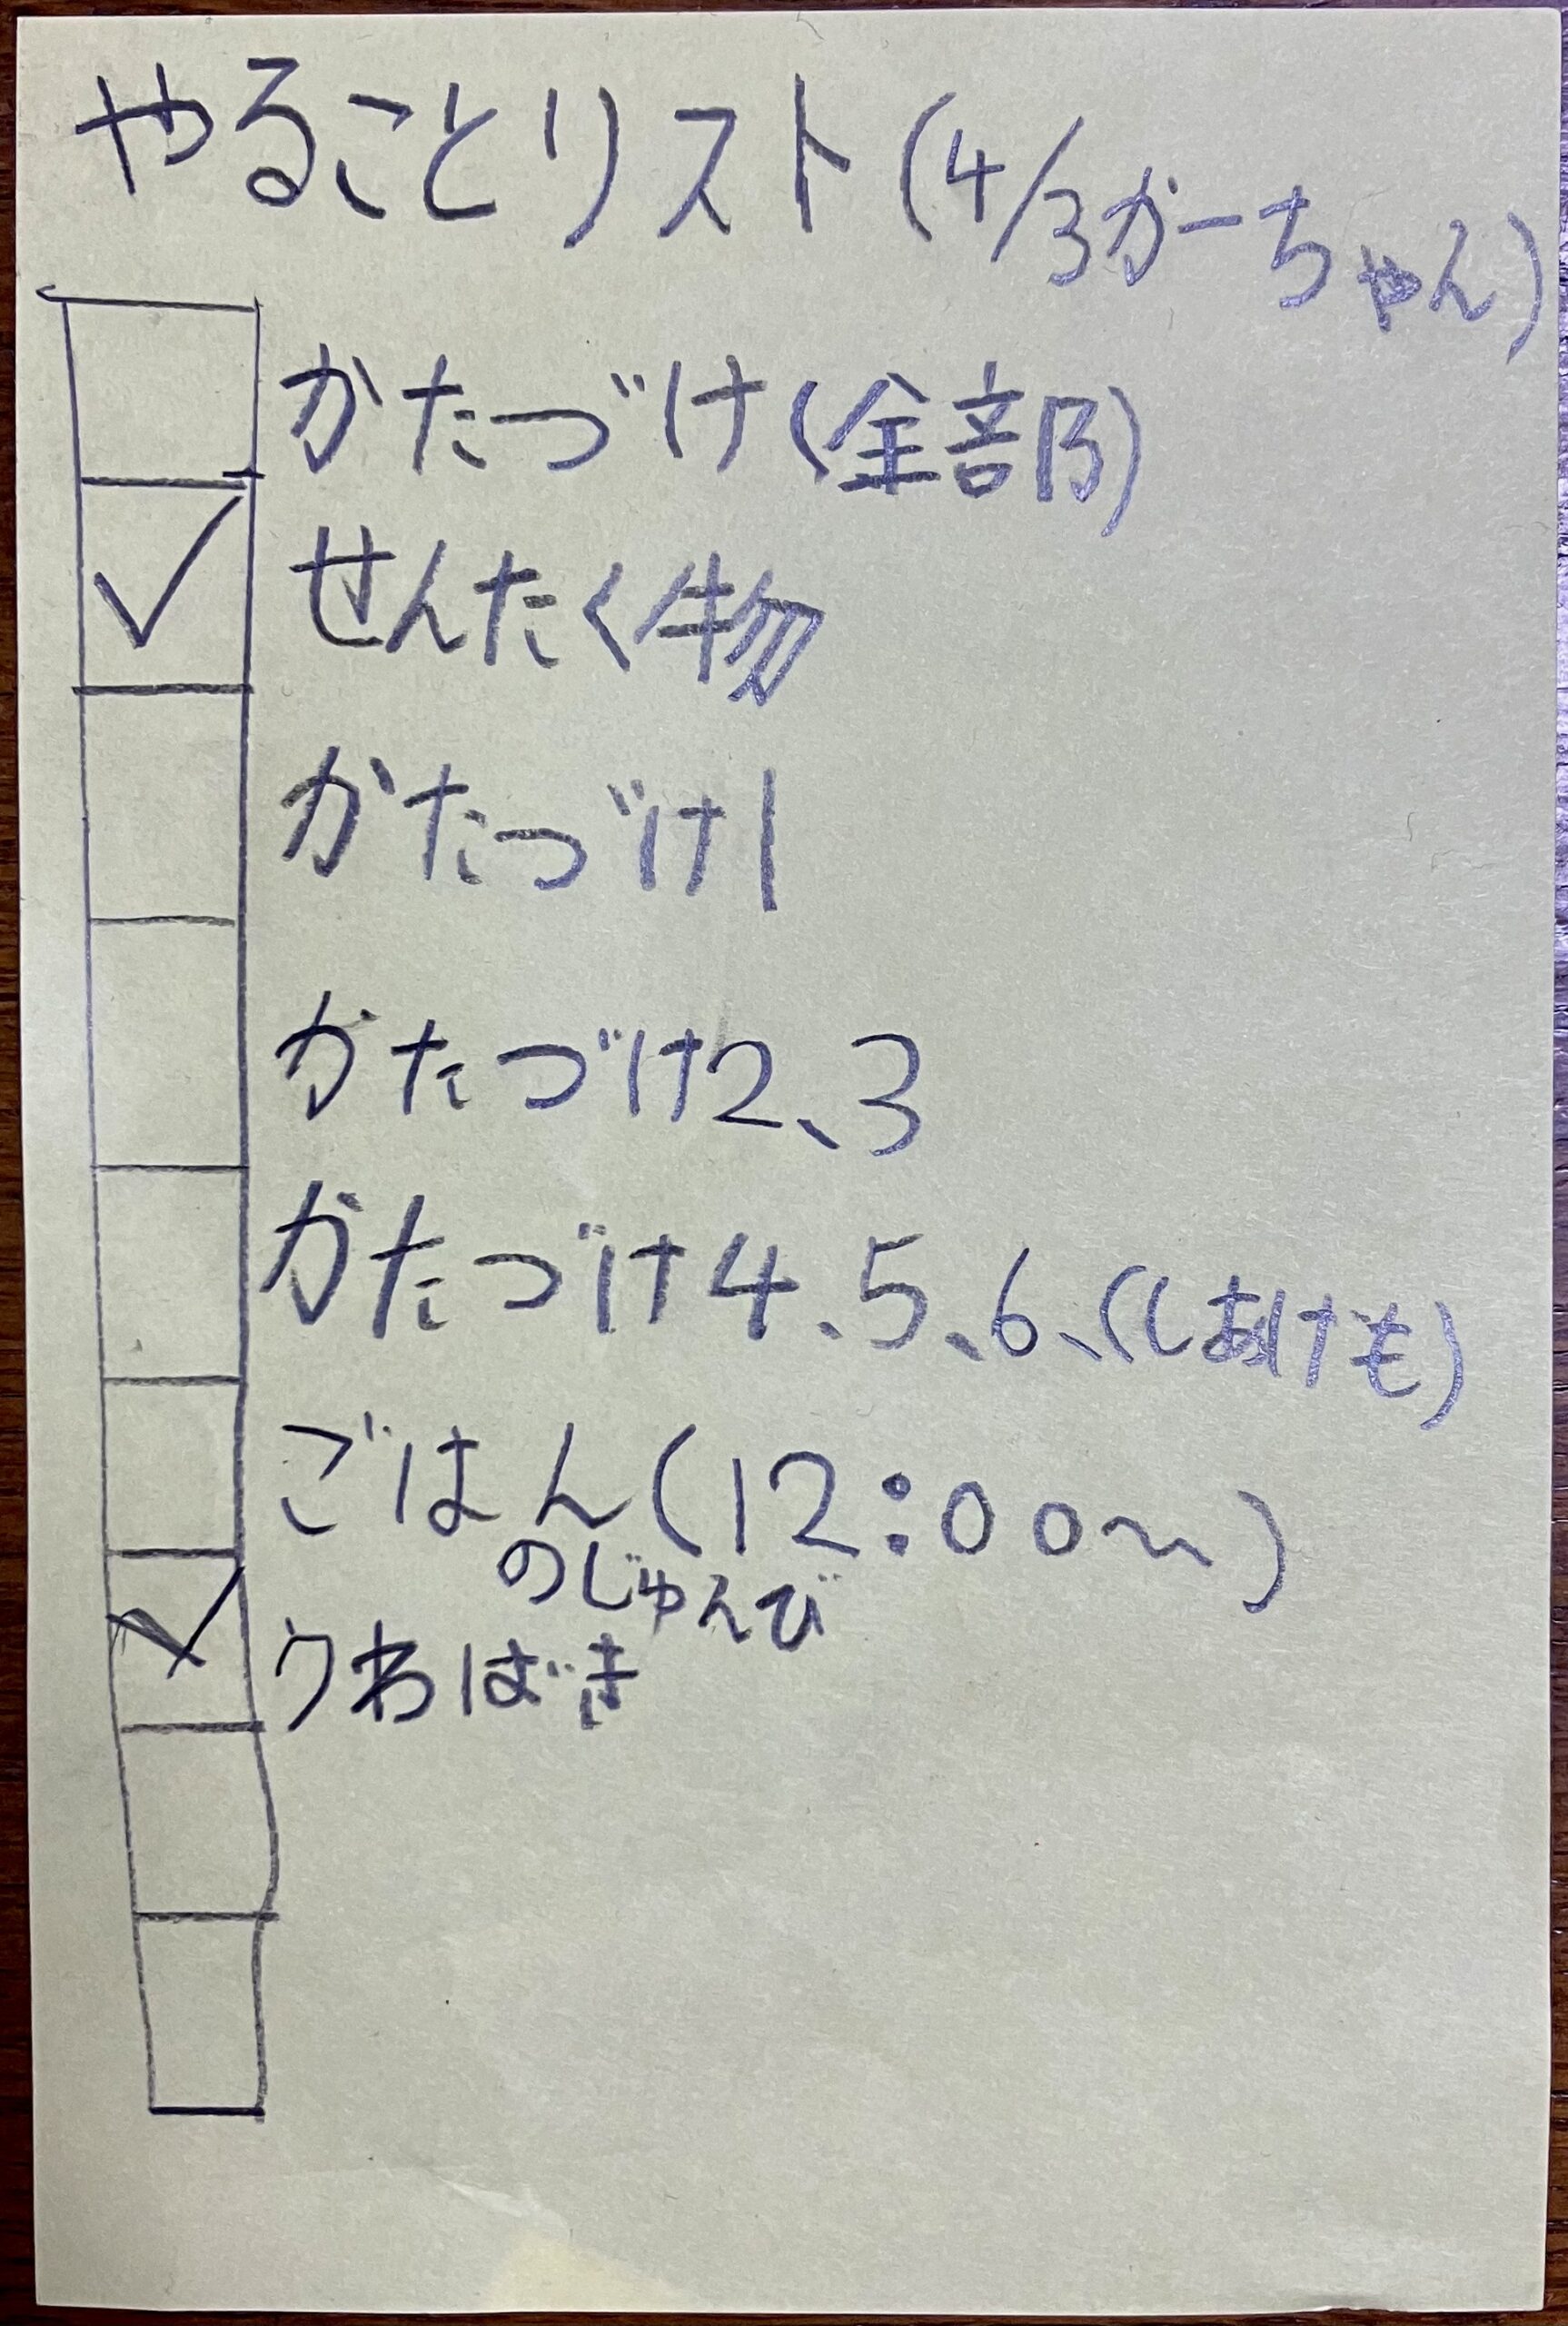 やることリスト(4/3かーちゃん)
かたづけ(全部)
せんたく物
かたづけ1
かたづけ2、3
かたづけ4、5、6、(しあげも)
ごはん(12:00〜)
のじゅんび
うわばき